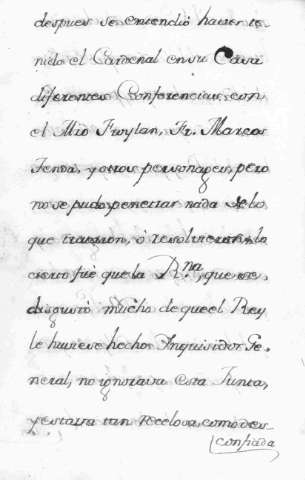 despues se entendió haver te-
nido el Cardenal en su Casa
diferentes Conferencias, con
el Mro Froylan, Fr. Marcos
Tenda, y otros personages, pero
no se pudo penetrar nada de lo
que trataron, ó resolvieron, lo
cierto fue que la Rna, que se
disgustó mucho de que el Rey
le huviese hecho Inquisidor Ge-
neral, no ignorava esta Junta,
y estava tan recelosa, como des-
confiada